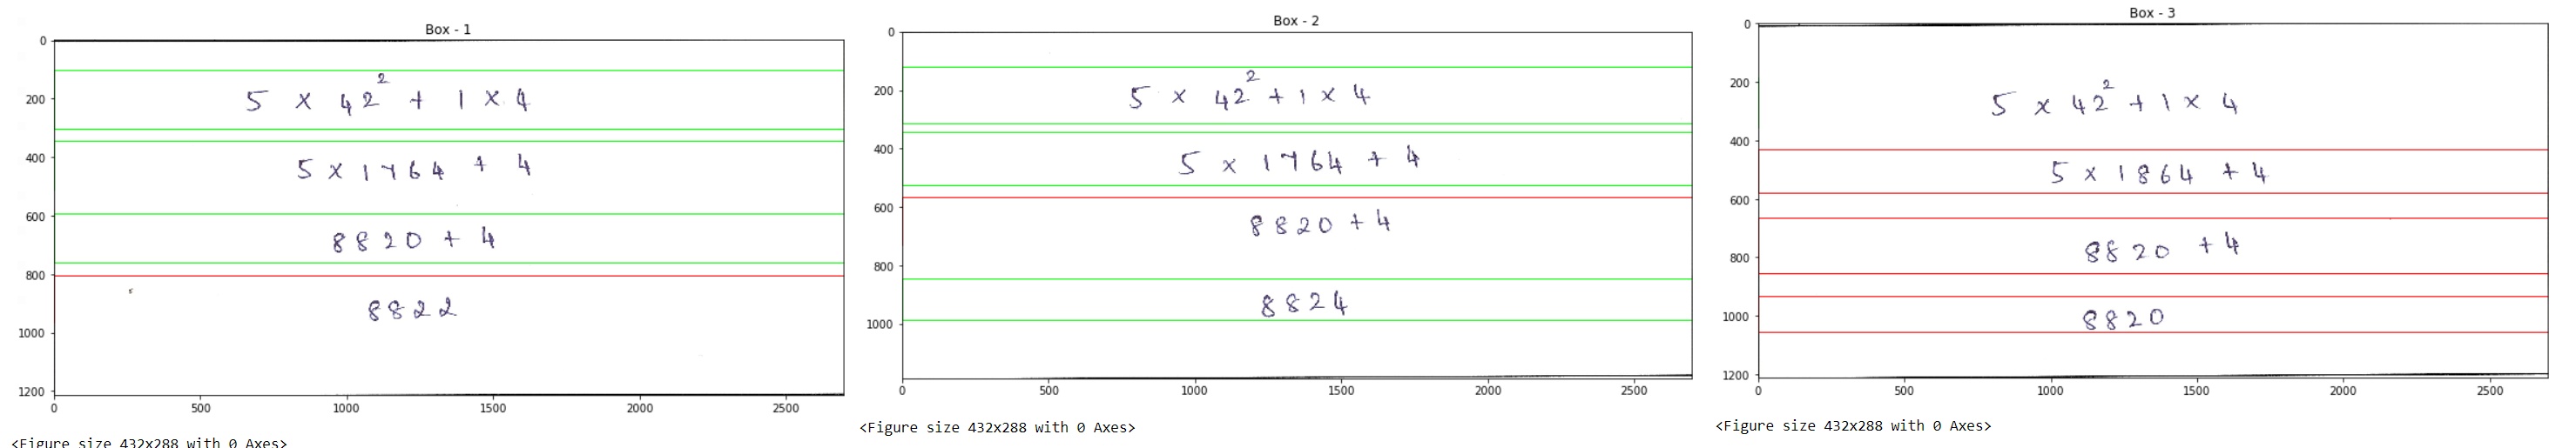 Box - 1
0
200
400
600
800
1000
1200
5 x 42² + 1 x 4
5 x 1764 + 4
8820 + 4
8822
0 500 1000 1500 2000 2500
<Figure size 432x288 with 0 Axes>
Box - 2
0
200
400
600
800
1000
5 x 42² + 1 x 4
5 x 1764 + 4
8820 + 4
8824
0 500 1000 1500 2000 2500
<Figure size 432x288 with 0 Axes>
Box - 3
0
200
400
600
800
1000
1200
5 x 42² + 1 x 4
5 x 1864 + 4
8820 + 4
8820
0 500 1000 1500 2000 2500
<Figure size 432x288 with 0 Axes>